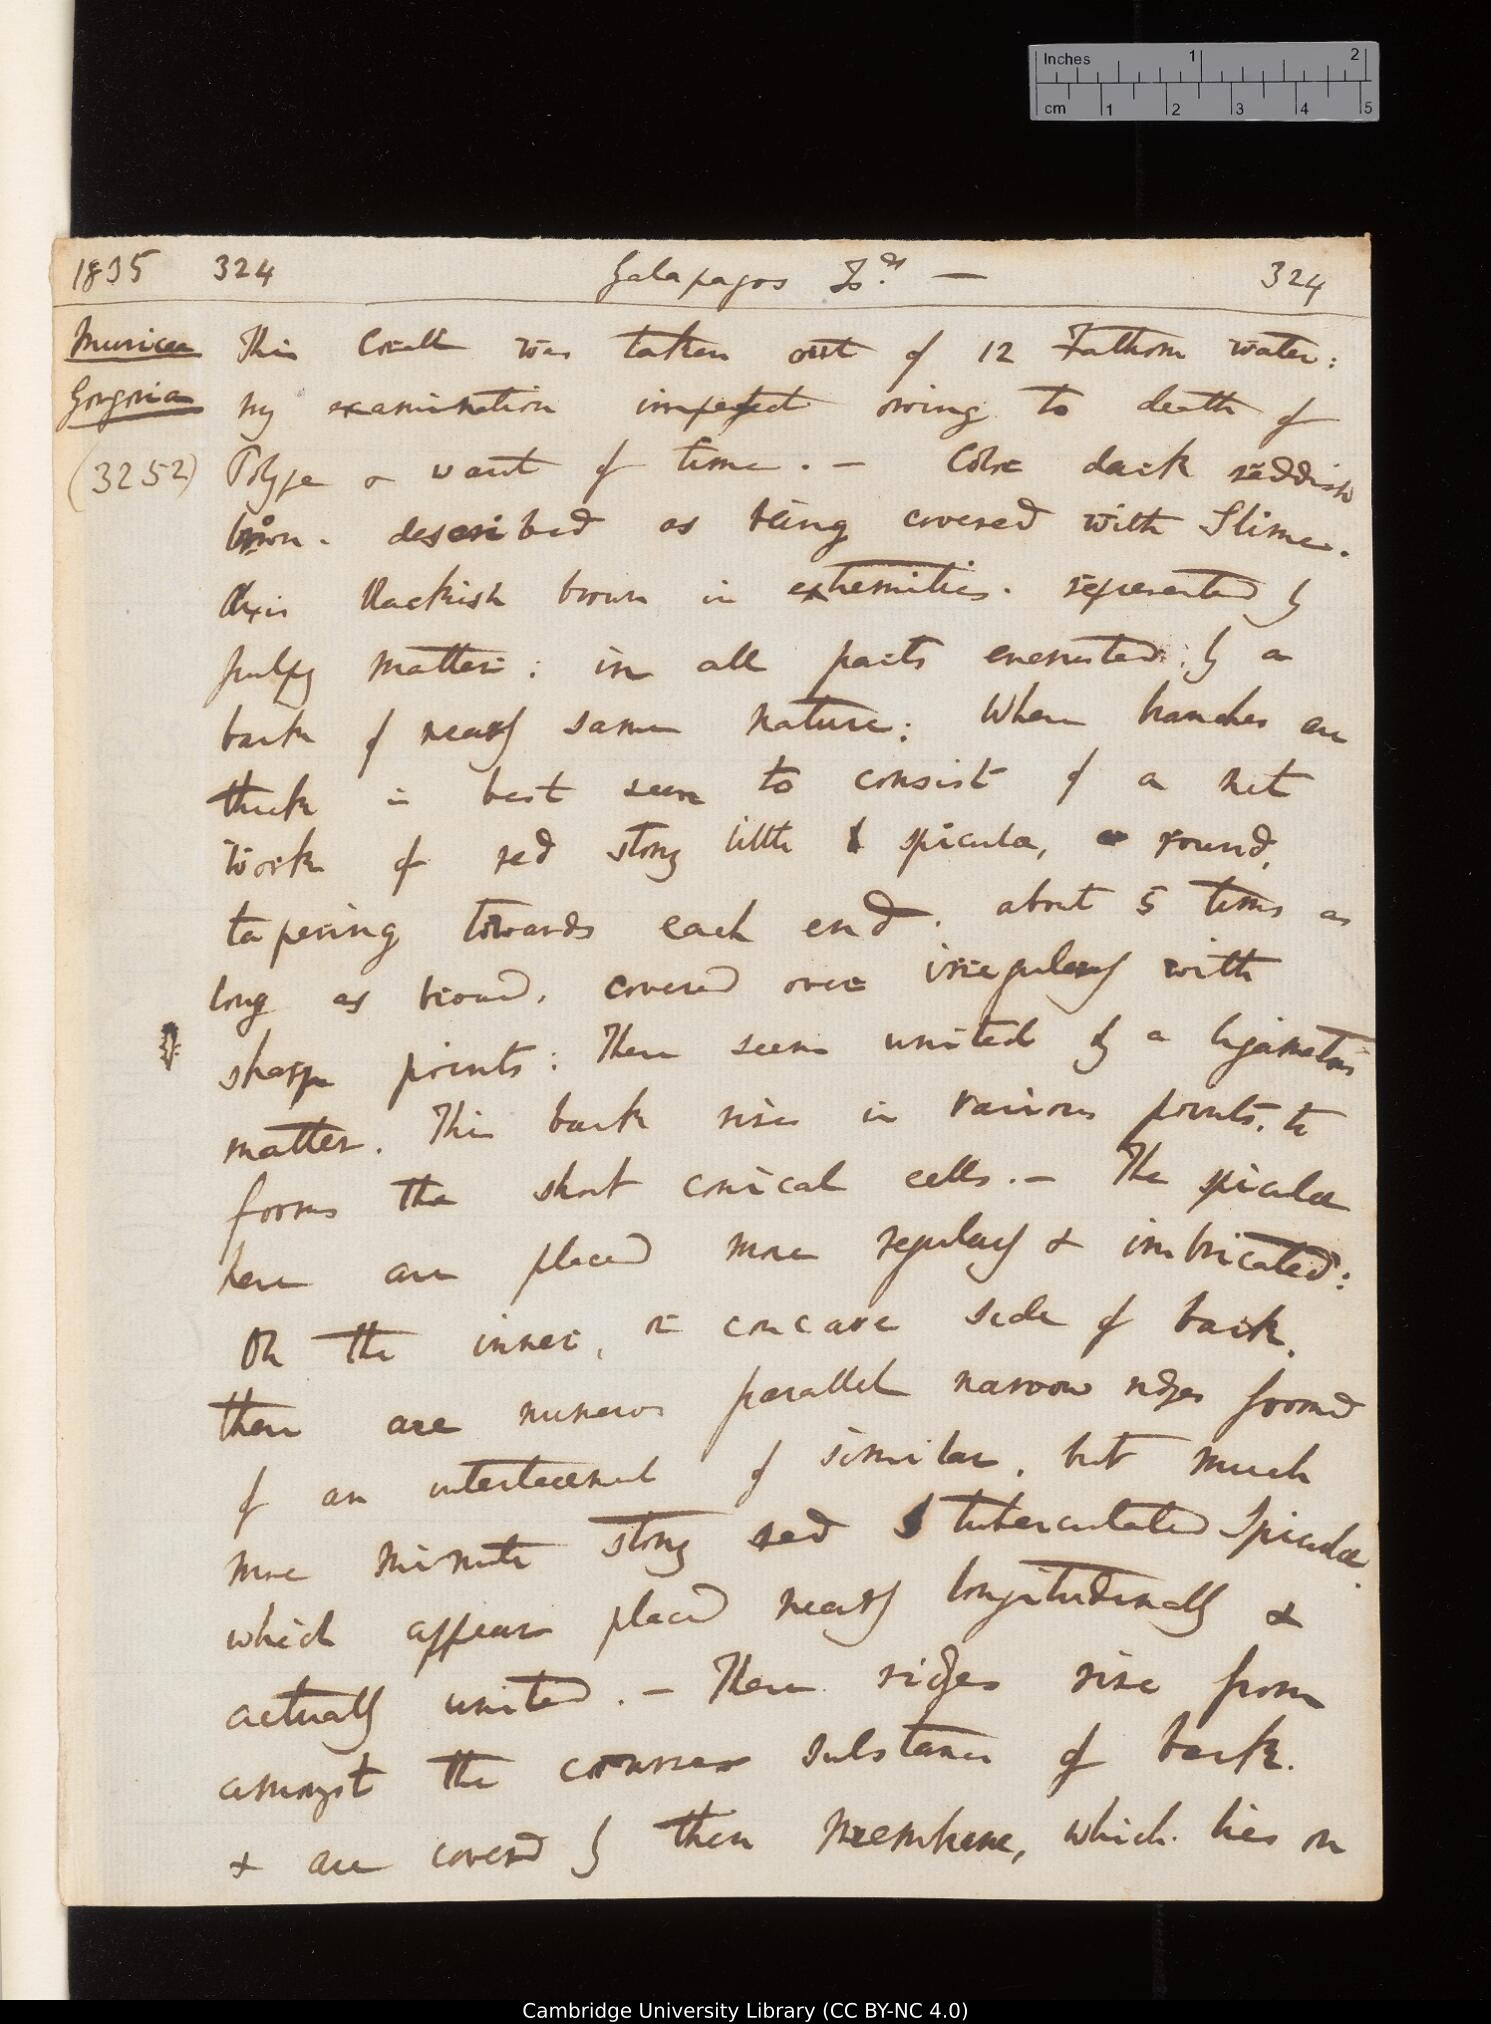 Inches 1 2
cm 1 2 3 4 5
1835 324 Galapagos Is.ds — 324
Muricea This Corall was taken out of 12 Fathom water:
Gorgonia my examination imperfect owing to death of
(3252) Polype & want of time. — Color dark reddish
brown. described as being covered with Slime.
Axis blackish brown in extremities. represented by
pulpy matter: in all parts encrusted by a
bark of nearly same nature: When branches are
thick is best seen to consist of a net
work of red stony little spicula, round,
tapering towards each end. about 5 times as
long as broad. covered over irregularly with
sharp points: These seem united by a ligametous
matter. This bark rises in various points, to
forms the short conical cells. — The spiculæ
here are placed more regularly & imbricated:
On the inner, or concave side of bark.
there are numerous parallel narrow ridges formed
of an interlacement of similar, but much
more minute stony red tuberculated Spiculæ.
which appear placed nearly longitudinally &
actually united. — These ridges rise from
amongst the coarser substance of bark.
& are covered by their membrane, which lies on
Cambridge University Library (CC BY-NC 4.0)